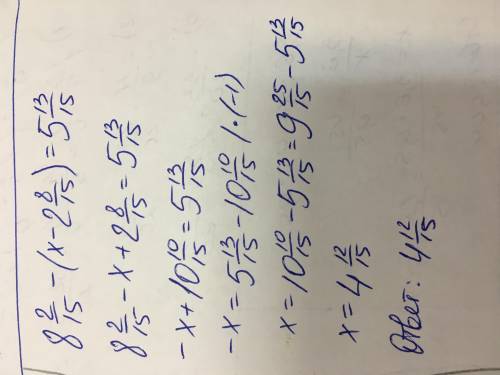 8 2/15 - (x - 2 8/15) = 5 13/15
8 2/15 - x + 2 8/15 = 5 13/15
- x + 10 10/15 = 5 13/15
- x = 5 13/15 - 10 10/15 | · (-1)
x = 10 10/15 - 5 13/15 = 9 25/15 - 5 13/15
x = 4 12/15
Ответ: 4 12/15